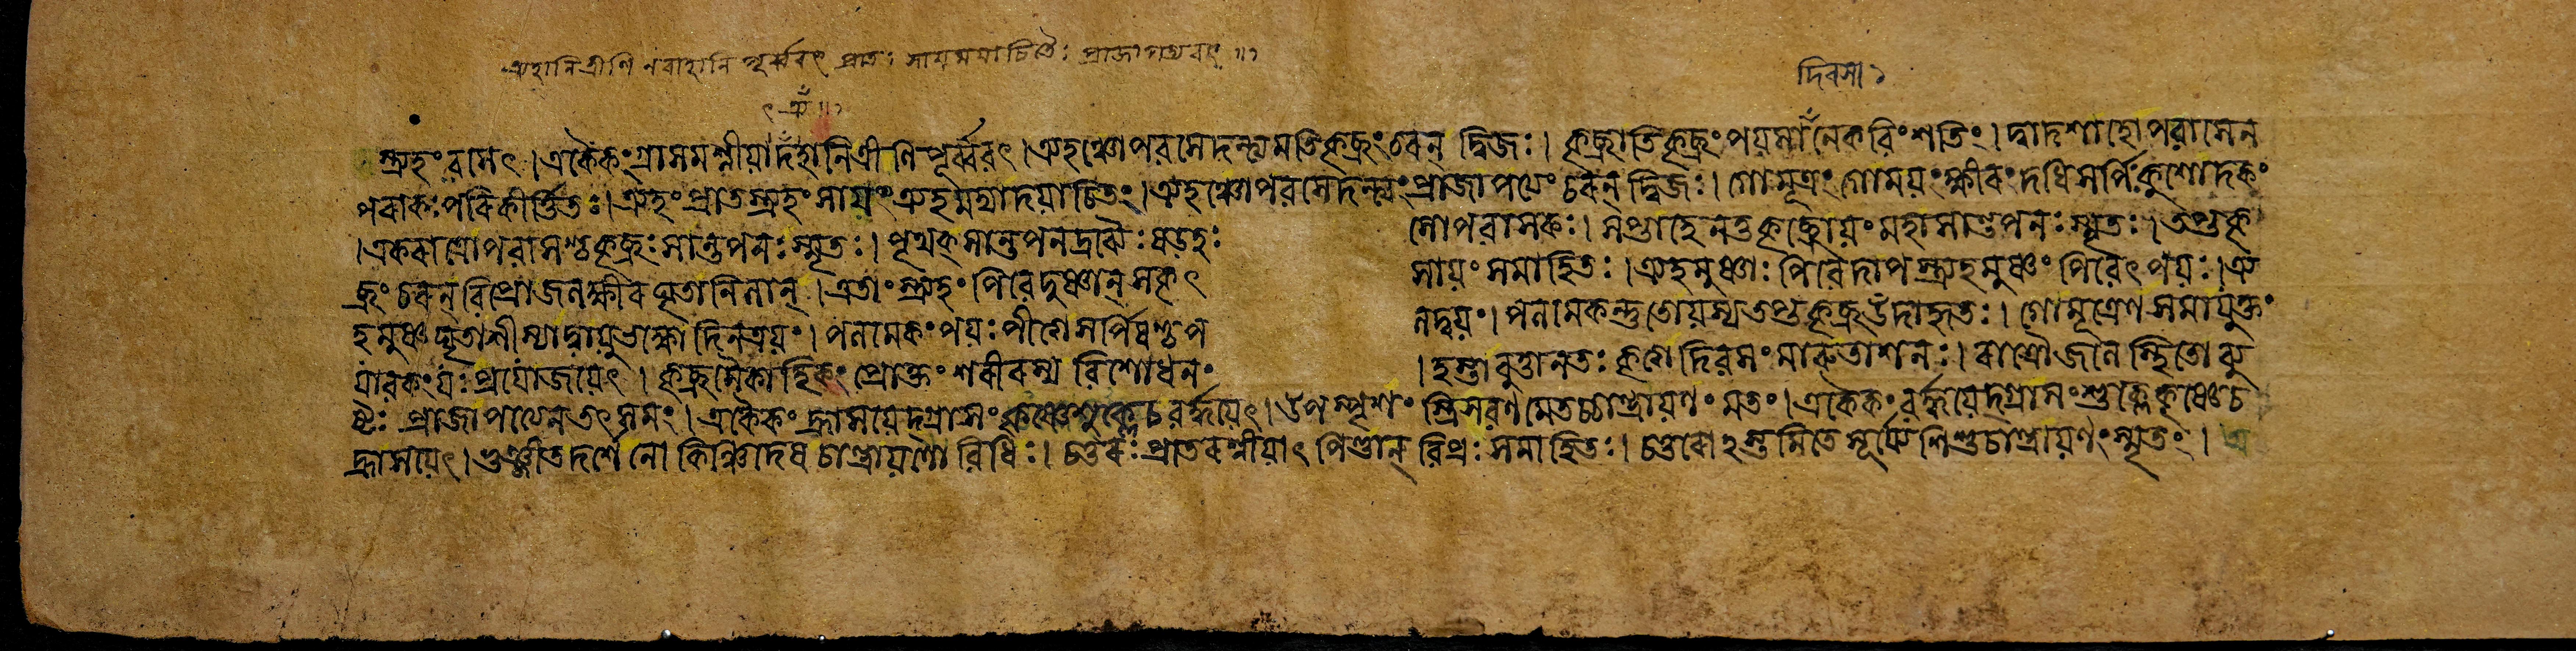 ত্র্যহানিত্রীণি নবাহানি পূর্ব্ববৎ প্রাতঃ সায়মযাচিতৈঃ প্রাজাপত্যবৎ ॥
দিবসা
স্ত্র্যহং বসেৎ । একৈকং গ্রাসমশ্নীয়াদহানিত্রীণি পূর্ব্ববৎ । ত্র্যহঞ্চোপবসেদন্ত্যমতিকৃচ্ছ্রং চরন্ দ্বিজঃ । কৃচ্ছ্রাতিকৃচ্ছ্রং পয়সানেকবিংশতিং । দ্বাদশাহোপবাসেন
পরাকঃ পরিকীর্ত্তিতঃ । ত্র্যহং প্রাতস্ত্র্যহং সায়ং ত্র্যহমদ্যাদয়াচিতং । ত্র্যহঞ্চোপবসেদন্ত্যং প্রাজাপত্যং চরন্ দ্বিজঃ । গোমূত্রং গোময়ং ক্ষীরং দধি সর্পিঃ কুশোদকং
। একরাত্রোপবাসশ্চ কৃচ্ছ্রঃ সান্তপনঃ স্মৃতঃ । পৃথক্ সান্তপনদ্রব্যৈঃ ষড়হঃ সোপবাসকঃ । সপ্তাহেন তু কৃচ্ছ্রোয়ং মহাসান্তপনঃ স্মৃতঃ । তপ্তকৃ
চ্ছ্রং চরন্ বিপ্রো জলক্ষীরঘৃতানিলান্ । এতাং স্ত্র্যহং পিবেদুষ্ণান্ সকৃৎ সায়ং সমাহিতঃ । ত্র্যহমুষ্ণাঃ পিবেদাপস্ত্র্যহমুষ্ণং পিবেৎ পয়ঃ । ত্র্য
হমুষ্ণঘৃতাশী স্যাদ্বায়ুভক্ষ্যো দিনত্রয়ং । পলমেকং পয়ঃ পীত্বা সর্পিষশ্চ প লদ্বয়ং । পলমেকন্তু তোয়স্য তপ্তকৃচ্ছ্র উদাহৃতঃ । গোমূত্রেণ সমায়ুক্তং
যাবকং যঃ প্রযোজয়েৎ । কৃচ্ছ্রমৈকাহিকং প্রোক্তং শরীরস্য বিশোধনং । হস্তাবুত্তানতঃ কৃত্বা দিবসং মারুতাশনঃ । রাত্রৌ জলে স্থিতো ব্যু
ষ্টৈঃ প্রাজাপত্যেন তৎ সমং । একৈকং হ্রাসয়েদ্গ্রাসং কৃষ্ণে শুক্লে চ বর্দ্ধয়েৎ । উপস্পৃশং স্ত্রিসবণমেতচ্চান্দ্রায়ণং মতং । একৈকং বর্দ্ধয়েদ্গ্রাসং শুক্লে কৃষ্ণে চ
হ্রাসয়েৎ । ভুঞ্জীত দর্শে নো কিঞ্চিদেষ চান্দ্রায়ণো বিধিঃ । চতুরঃ প্রাতরশ্নীয়াৎ পিণ্ডান্ বিপ্রঃ সমাহিতঃ । চতুরোঽস্তমিতে সূর্য্যে শিশুচান্দ্রায়ণং স্মৃতং ।